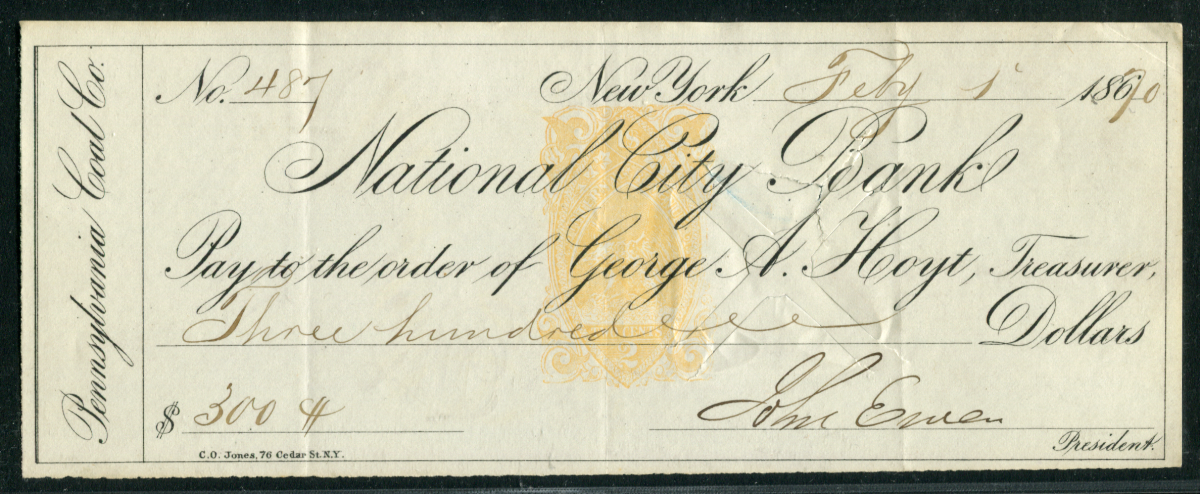 Pennsylvania Coal Co.
No. 487 New York Feby 1 1870
National City Bank
Pay to the order of George A. Hoyt, Treasurer,
Three hundred Dollars
$ 300 John Ewen
President.
C.O. Jones, 76 Cedar St. N.Y.